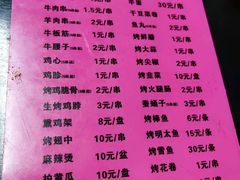 牛肉串 1.5元/串
羊肉串 2元/串
牛板筋 2元/串
牛腰子 2元/串
鸡心 1元/串
鸡胗 2元/串
烤鸡脆骨 2元/串
生烤鸡脖 3元/串
熏鸡架 8元/只
烤翅中 10元/串
麻辣烫 10元/盆
拍黄瓜 10元/盆
羊蛋 30元/串
干豆菜卷 1元/串
鱼丸 2元/串
烤辣椒 2元/串
烤大蒜 1元/串
烤尖椒 2元/串
烤韭菜 10元/盘
烤火腿肠 2元/串
蚕蛹子 3元/串
烤棒鱼 6元/条
烤明太鱼 15元/条
烤雪鱼 30元/条
烤花卷 1元/串